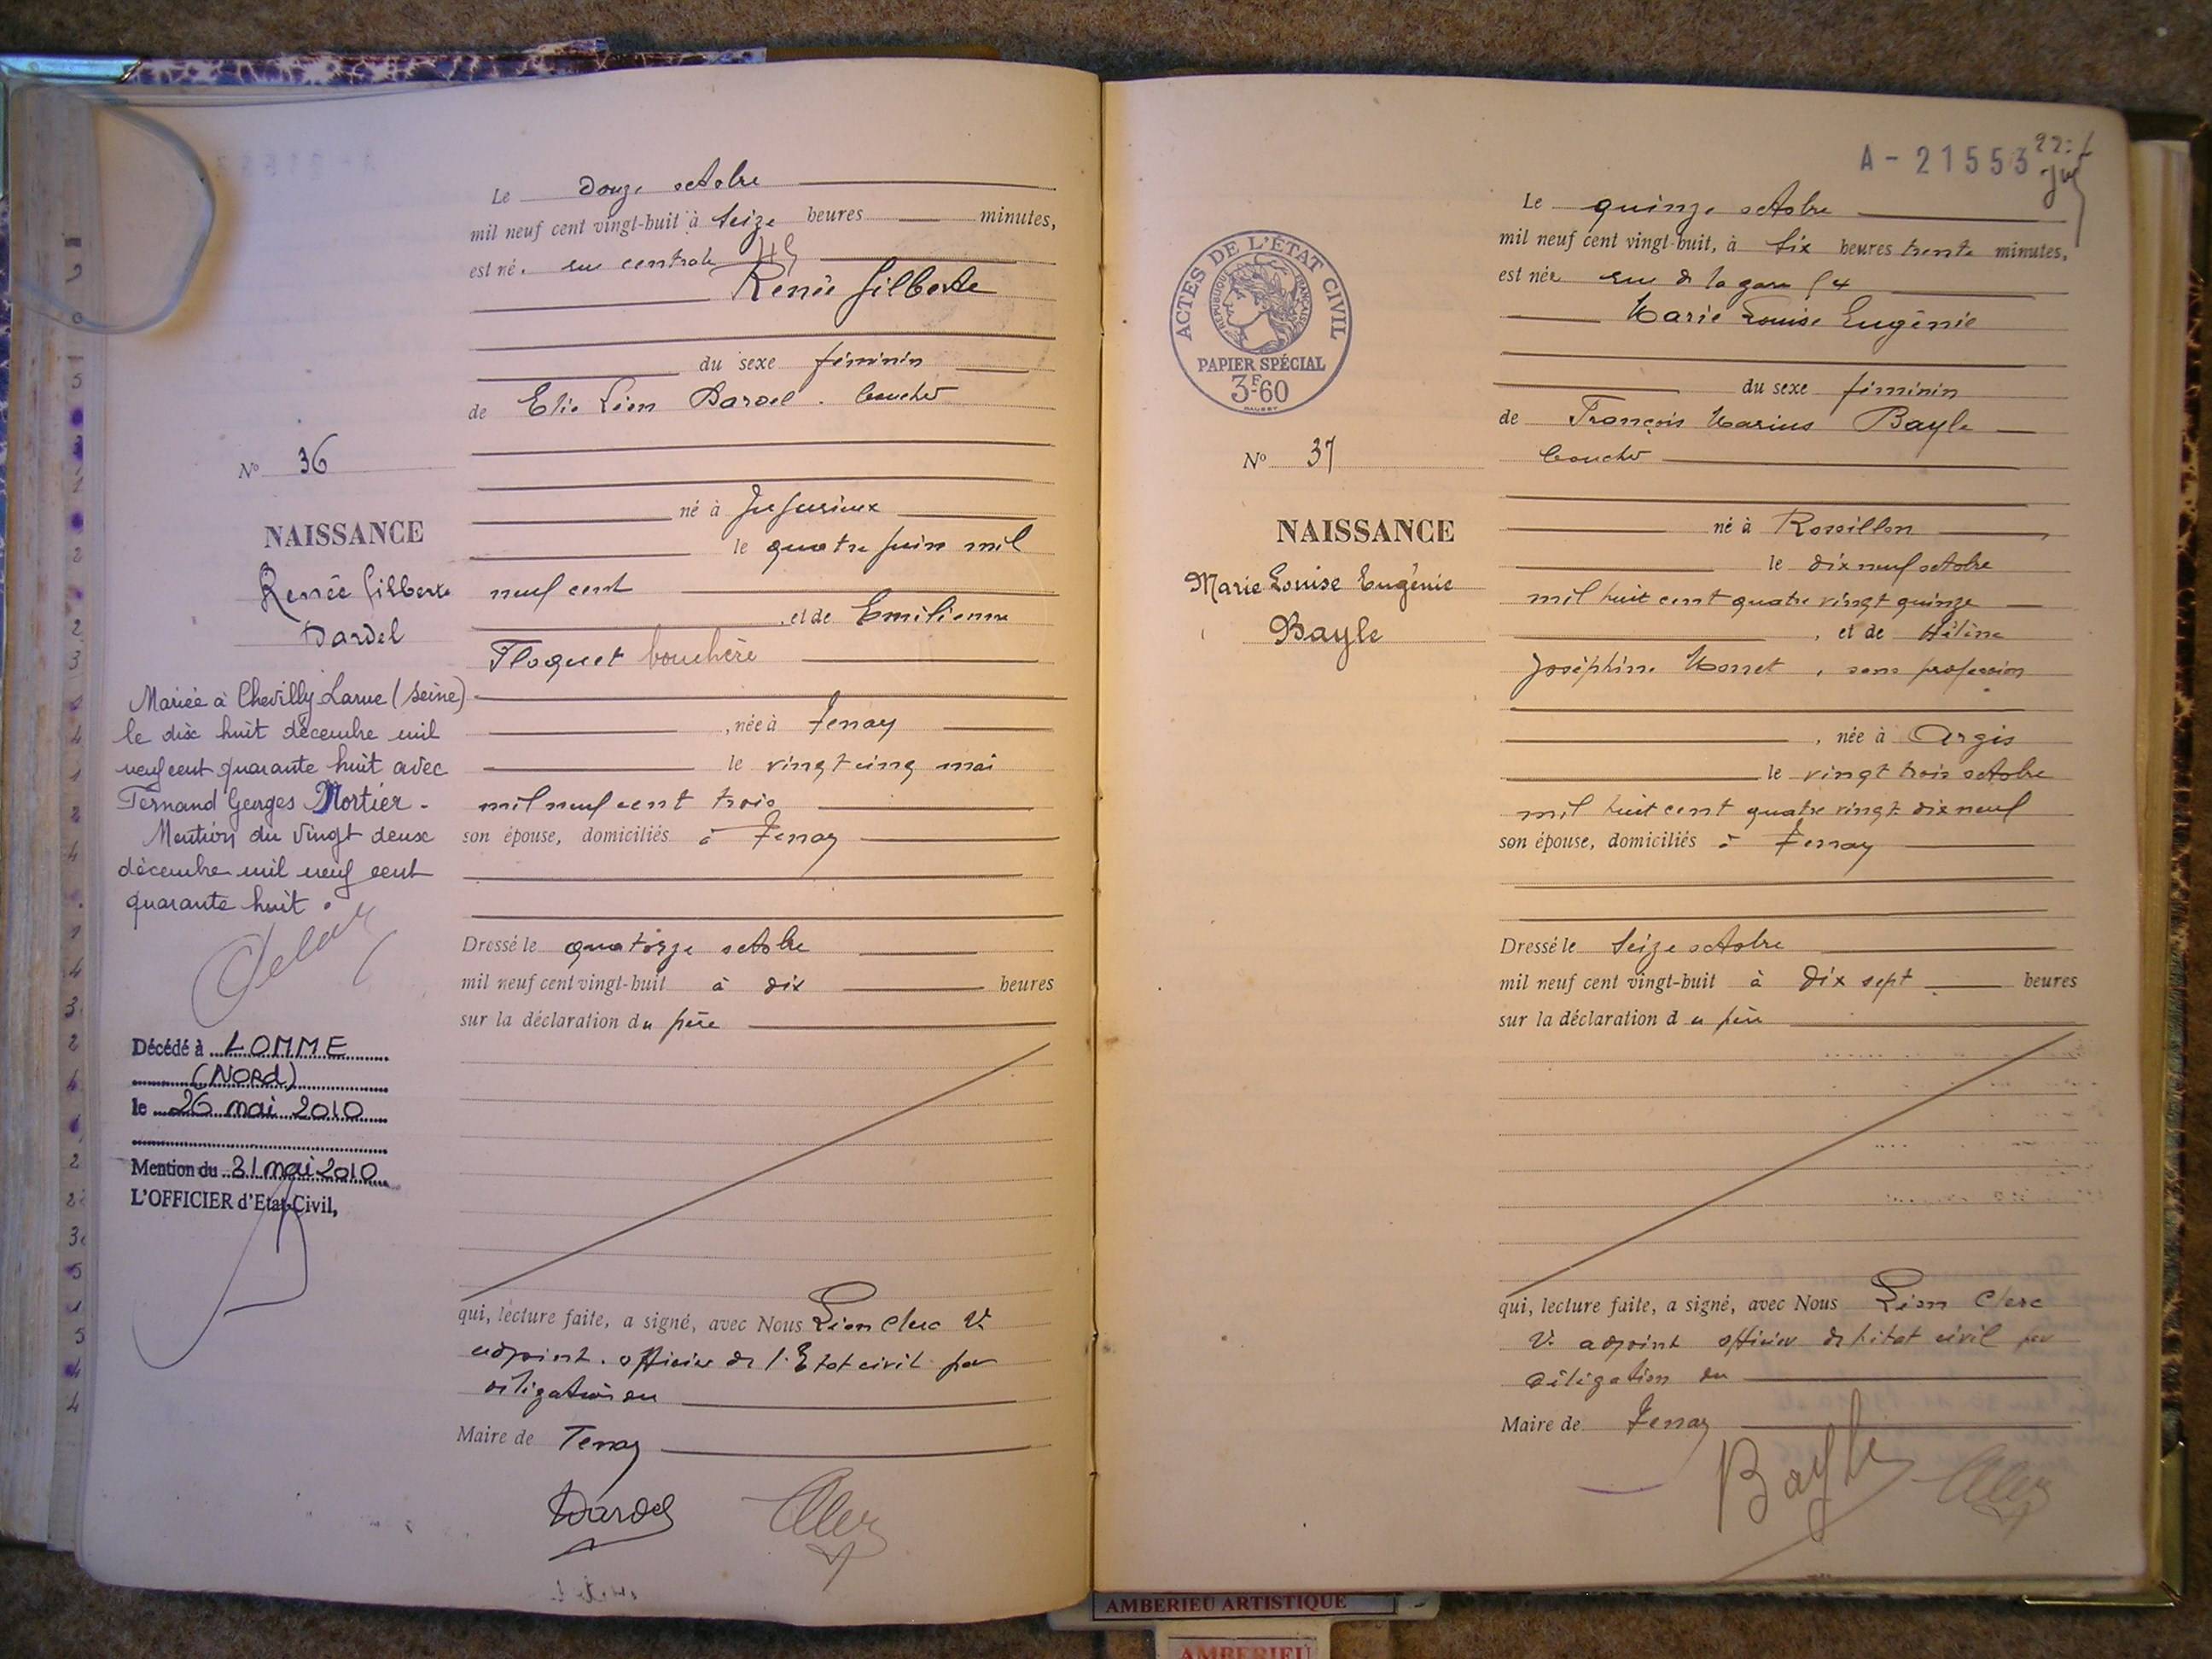 Le douze octobre
mil neuf cent vingt-huit à seize heures minutes,
est né. rue centrale 45
Renée Gilberte
du sexe féminin
de Elie Léon Dardel. boucher
N° 36
né à Jujurieux
NAISSANCE
le quatre juin mil
Renée Gilberte
neuf cent
, et de Emilienne
Dardel
Floquet bouchère
Mariée à Chevilly Larue (Seine)
le dix huit décembre mil
neuf cent quarante huit avec
Fernand Georges Mortier.
Mention du vingt deux
décembre mil neuf cent
quarante huit.
, née à Tenay
le vingt cinq mai
mil neuf cent trois
son épouse, domiciliés à Tenay
Dressé le quatorze octobre
mil neuf cent vingt-huit à dix heures
sur la déclaration du père
Décédé à LOMME
(NORd)
le 26 mai 2010
Mention du 31 mai 2010
L'OFFICIER d'Etat-Civil,
qui, lecture faite, a signé, avec Nous Léon Clerc
adjoint. officier de l'Etat civil par
délégation du
Maire de Tenay
Dardel
A-21553
ACTES DE L'ÉTAT CIVIL
RÉPUBLIQUE FRANÇAISE
PAPIER SPÉCIAL
3F60
Le quinze octobre
mil neuf cent vingt-huit, à six heures trente minutes,
est née rue de la gare 54
Marie Louise Eugénie
du sexe féminin
de François Marius Bayle
boucher
N° 37
né à Rossillon
NAISSANCE
le dix neuf octobre
Marie Louise Eugénie
mil huit cent quatre vingt quinze
Bayle
, et de Hélène
Joséphine Monet, sans profession
, née à Argis
le vingt trois octobre
mil huit cent quatre vingt dix neuf
son épouse, domiciliés à Tenay
Dressé le seize octobre
mil neuf cent vingt-huit à dix sept heures
sur la déclaration du père
qui, lecture faite, a signé, avec Nous Léon Clerc
adjoint officier de l'état civil par
délégation du
Maire de Tenay
Bayle
AMBERIEU ARTISTIQUE
AMBERIEU